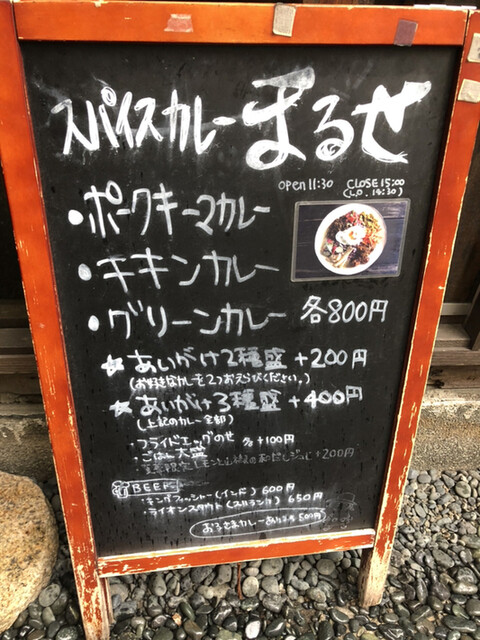 スパイスカレー まるせ
open 11:30 CLOSE 15:00
(L.O. 14:30)
・ポークキーマカレー
・チキンカレー
・グリーンカレー 各800円
☆あいがけ2種盛 +200円
(お好きなカレーを2つおえらびください。)
☆あいがけ3種盛 +400円
(上記のカレー全部)
・フライドエッグのせ +100円
・ごはん大盛
+200円
BEER
・キングフィッシャー(インド) 600円
・ライオンスタウト(スリランカ) 650円
お子さまカレーあります 500円